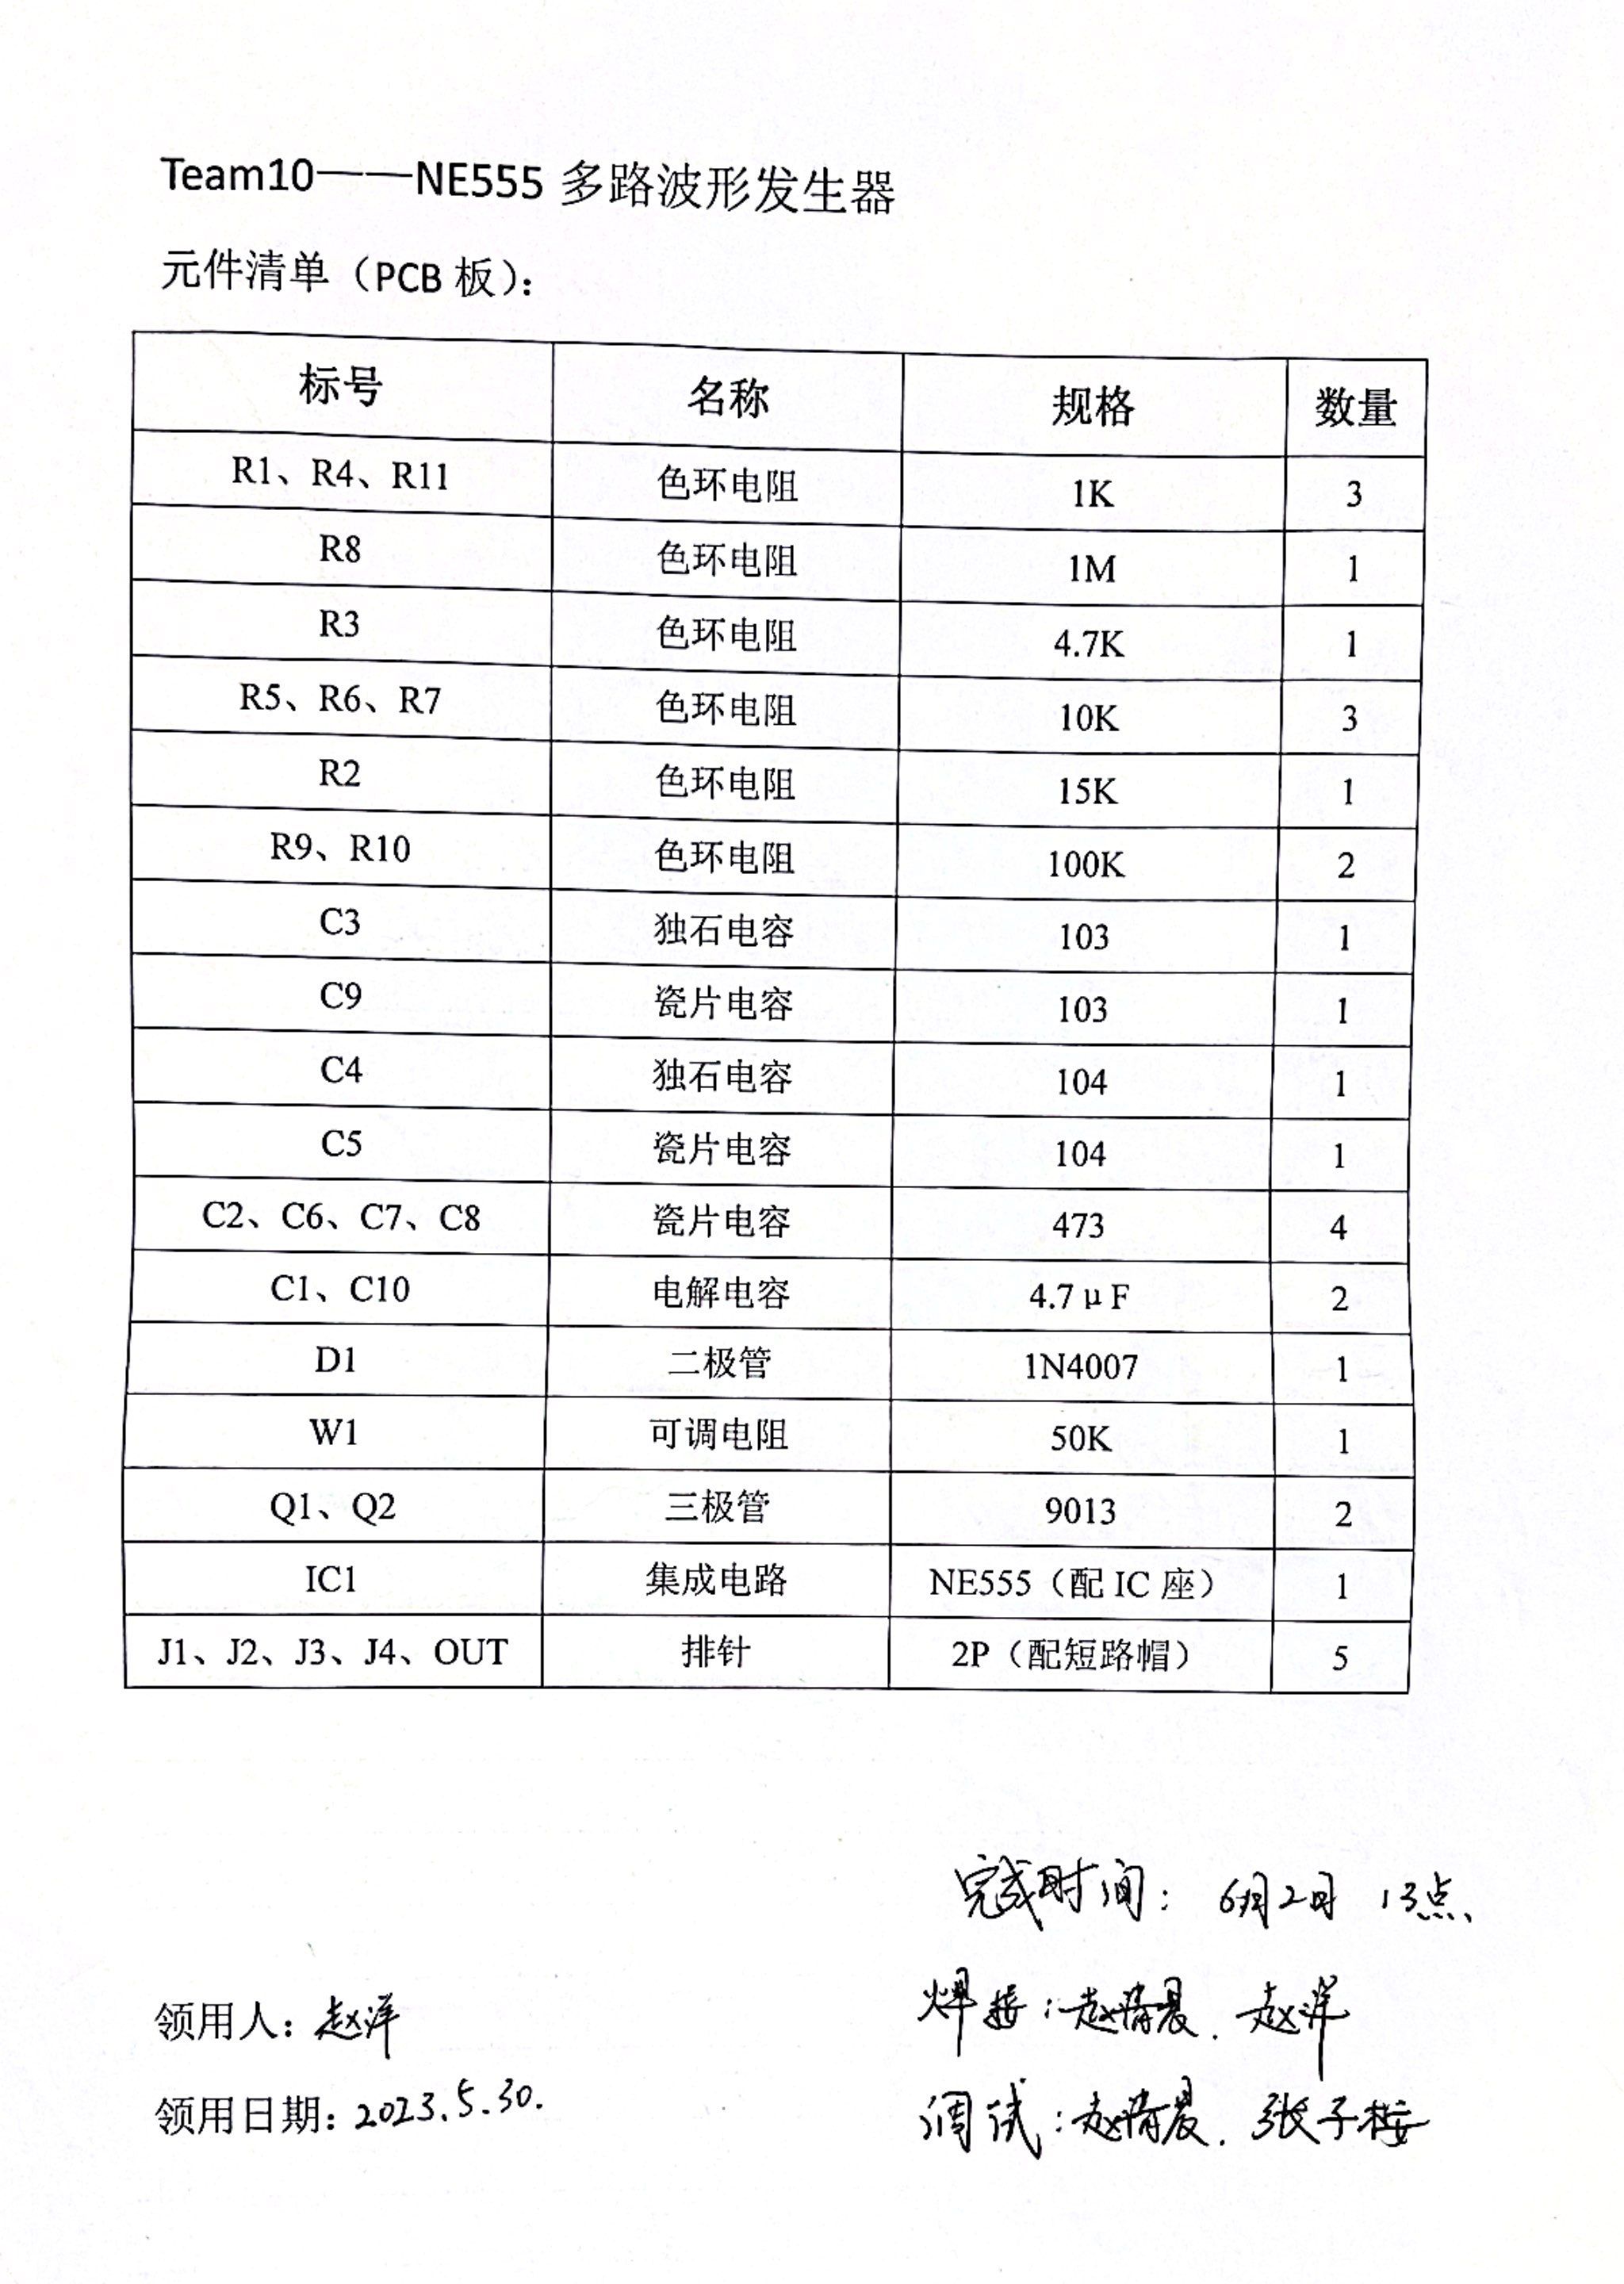 Team10——NE555 多路波形发生器
元件清单（PCB 板）：
标号 名称 规格 数量
R1、R4、R11 色环电阻 1K 3
R8 色环电阻 1M 1
R3 色环电阻 4.7K 1
R5、R6、R7 色环电阻 10K 3
R2 色环电阻 15K 1
R9、R10 色环电阻 100K 2
C3 独石电容 103 1
C9 瓷片电容 103 1
C4 独石电容 104 1
C5 瓷片电容 104 1
C2、C6、C7、C8 瓷片电容 473 4
C1、C10 电解电容 4.7μF 2
D1 二极管 1N4007 1
W1 可调电阻 50K 1
Q1、Q2 三极管 9013 2
IC1 集成电路 NE555（配 IC 座） 1
J1、J2、J3、J4、OUT 排针 2P（配短路帽） 5
完成时间：6月2日 13点
领用人：赵洋
焊接：赵 晨. 赵洋
领用日期：2023.5.30.
调试：赵 晨. 张子